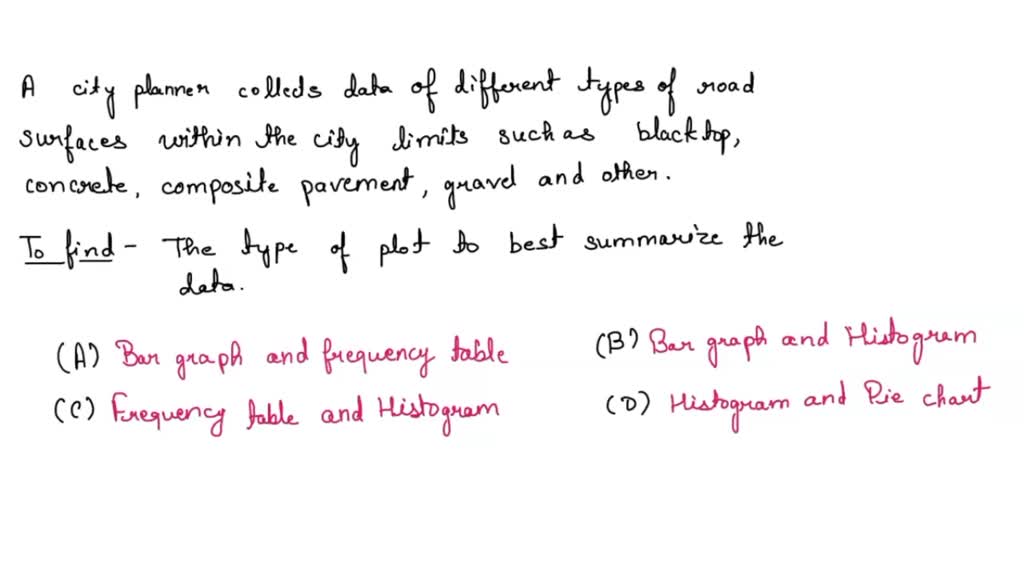 A city planner collects data of different types of road
surfaces within the city limits such as blacktop,
concrete, composite pavement, gravel and other.
To find - The type of plot to best summarize the
data.
(A) Bar graph and frequency table
(B) Bar graph and Histogram
(C) Frequency table and Histogram
(D) Histogram and Pie chart